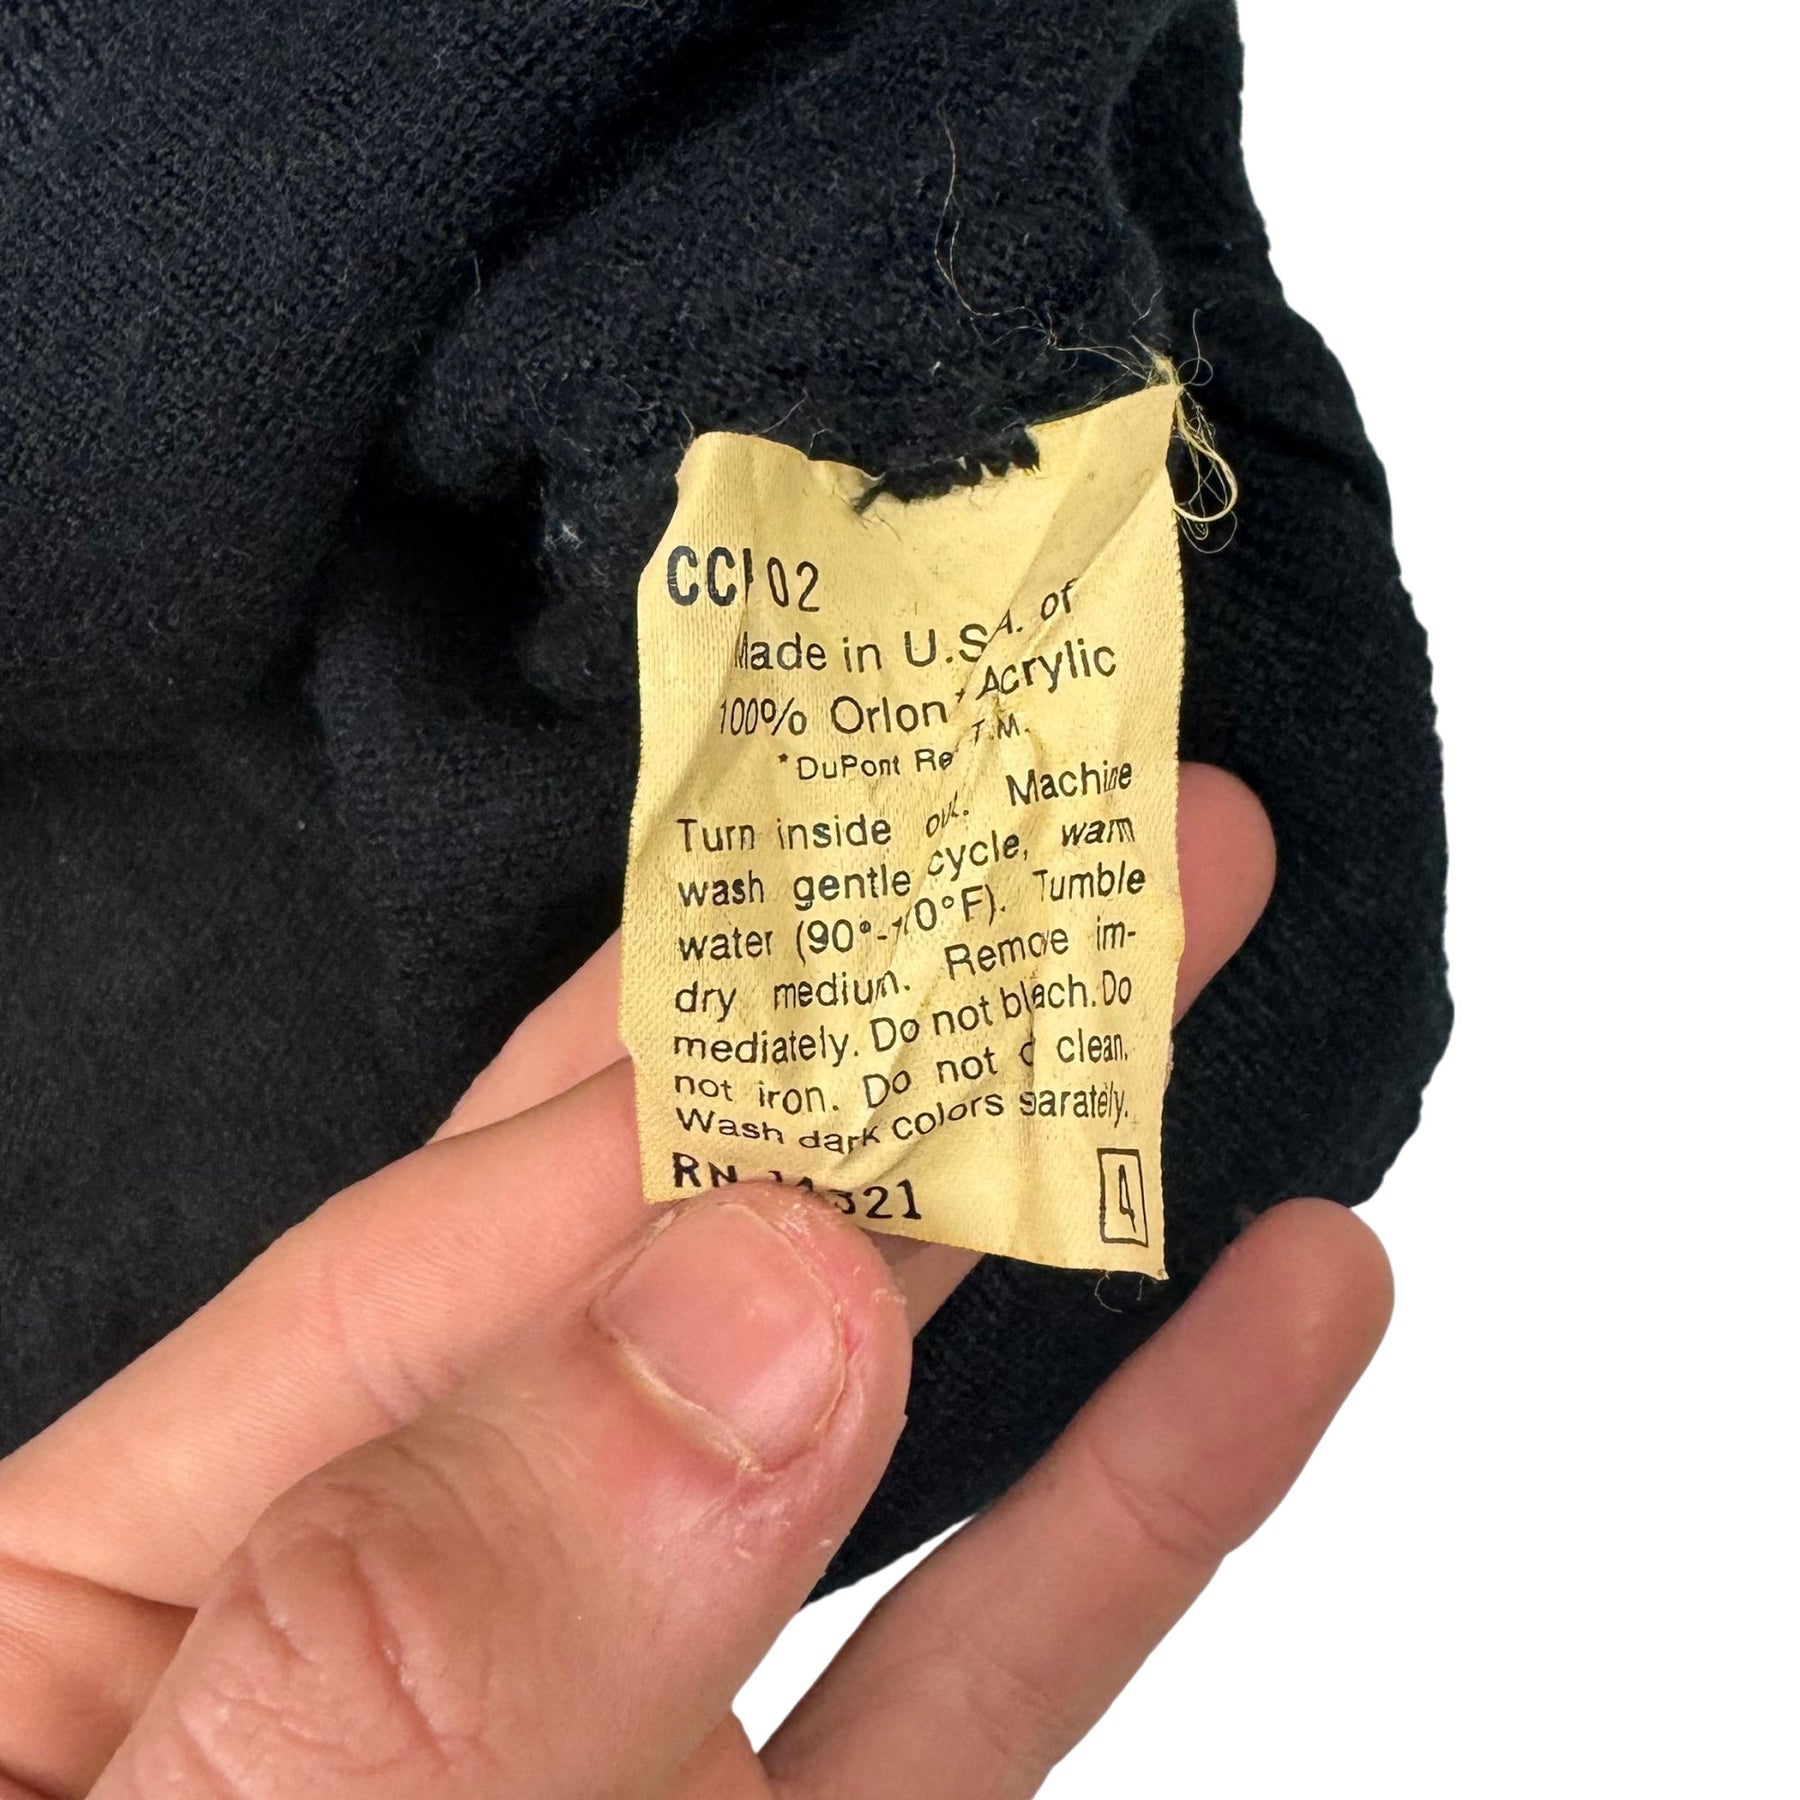 CC 02
Made in U.S.A. of
100% Orlon* Acrylic
*DuPont Re T.M.
Turn inside out. Machine
wash gentle cycle, warm
water (90°- 0°F). Tumble
dry medium. Remove im-
mediately. Do not bleach. Do
not iron. Do not clean.
Wash dark colors separately.
RN 321
4